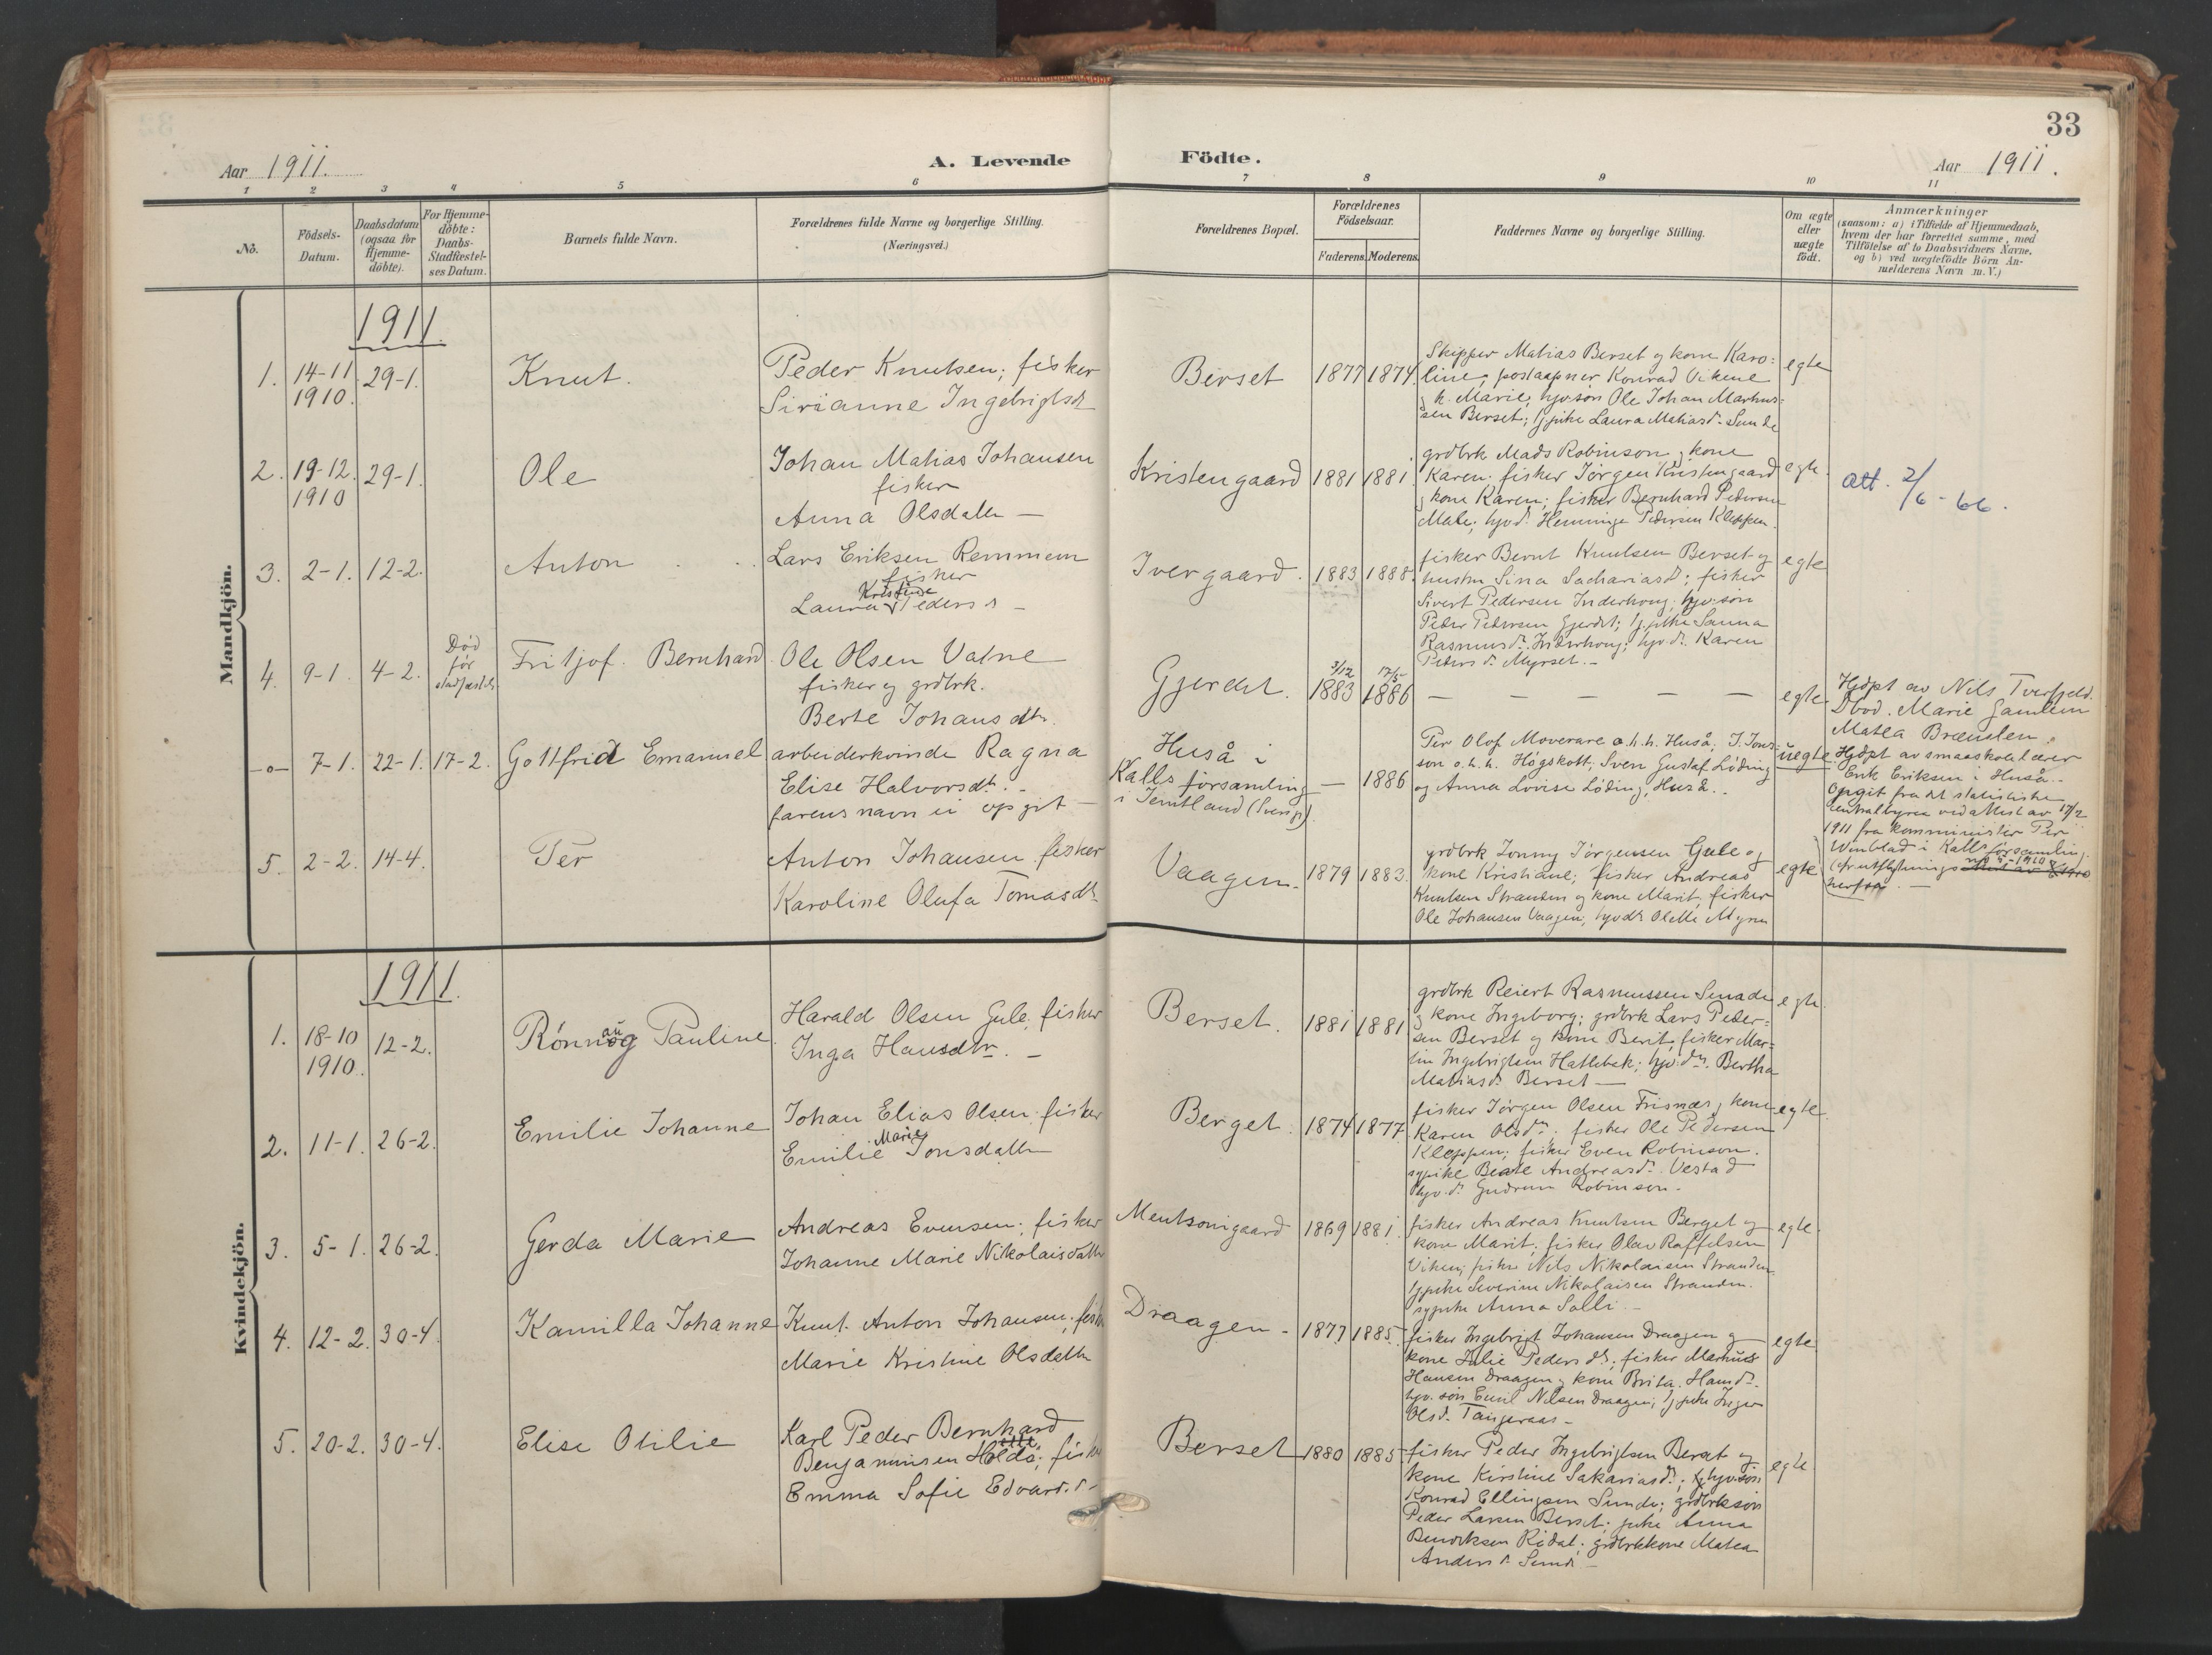 33
Aar 1911.
A. Levende Födte.
Aar 1911.
1 2 3 4 5 6 7 8 9 10 11
No.
Födsels-
Datum.
Daabsdatum
(ogsaa for
Hjemme-
döbte).
For Hjemme-
döbte:
Daabs-
Stadfæstel-
ses Datum.
Barnets fulde Navn.
Forældrenes fulde Navne og borgerlige Stilling.
(Næringsvei.)
Forældrenes Bopæl.
Forældrenes
Födselsaar.
Faderens. Moderens.
Faddernes Navne og borgerlige Stilling.
Om ægte
eller
uægte
födt.
Anmærkninger
(saasom: a) i Tilfælde af Hjemmedaab,
hvem der har forrettet samme, med
Tilföielse af to Daabsvidners Navne,
og b) ved uægtefödte Börn An-
melderens Navn m. V.)
Mandkjön.
1911.
1.
14-11
1910.
29-1.
Knut.
Peder Knutsen; fisker
Sirianne Ingebrigtsdt
Berset
1877
1874.
Skipper Matias Berset og kone Karo-
line; postaapner Konrad Vikene
k. Marie; hjv.søn Ole Johan Markus-
sen Berset; tj.pike Laura Matiasd. Sunde
egte
2.
19-12.
1910
29-1.
Ole
Johan Matias Johansen
fisker
Anna Olsdatter —
Kristengaard
1881
1881
grdbrk Mads Robinson, kone
Karen. fisker Jørgen Kristengaard
kone Karen; fisker Bernhard Pedersen
Male; hjvd. Henninge Pedersen Kleppen.
egte.
att. 2/6-66.
3.
2-1.
12-2.
Anton
Lars Eriksen Remmem
fisker
Kristine
Laura Peders d —
Ivergaard.
1883
1888.
fisker Bernt Knutsen Berset og
hustru Sina Sachariasd; fisker
Sivert Pedersen Inderhaug, hjv.søn
Peder Pedersen Gjerdet; tj.pike Sanna
Rasmusd. Inderhaug; hjv.d. Karen
Peders d. Myrset. —
egte
4.
9-1.
4-2.
Død
før
stadfæstels.
Fritjof. Bernhard.
Ole Olsen Valne
fisker og grdbrk.
Berte Johansdtr.
Gjerdet.
3/12
1883
12/5
1886
— — — — —
egte
Hjdpt av Nils Tverfjeld.
Dbod. Marie Gamlem
Matea Brænden.
—o—
7-1.
22-1.
17-2.
Gottfrid Emanuel
arbeiderkvinde Ragna
Elise Halvorsdt. —
farens navn ei opgit —
Huså i
Kalls församling
i Jemtland (Sverige).
—
1886
Per Olof Moverare o.h.h. Huså; J. Jons-
son o.h.h. Högskott; Sven Gustaf Löding
og Anna Lovise Löding, Huså. —
uegte.
Hjdpt av smaaskolelærer
Erik Eriksen i Huså. —
Opgit fra det statistiske
centralbyraa ved attest av 17/2
1911 fra komminister Per
Winblad i Kalls församling.
herfra. —
5.
2-2.
14-4.
Per
Anton Johansen fisker
Karoline Olufa Tomasdt
Vaagen.
1879
1883.
grdbrk Jonny Jørgensen Gule og
kone Kristiane; fisker Andreas
Knutsen Stranden og kone Marit, fisker
Ole Johansen Vaagen; hjvdt Olette Myren
egte
Kvindekjön.
1911.
1.
18-10
1910.
12-2.
Rönnaug Pauline.
Harald Olsen Gule, fisker
Inga Hansdtr. —
Berset.
1881
1881
grdbrk Reiert Rasmussen Sunde
og kone Ingeborg; grdbrk Lars Peder-
sen Berset og kone Berit, fisker Mar-
tin Ingebrigtsen Hattebak; hjv.dt. Bertha
Matiasd. Berset —
egte.
2.
11-1.
26-2.
Emilie Johanne
Johan Elias Olsen. fisker
Marie
Emilie Jonsdatter
Berget.
1874
1877.
fisker Jörgen Olsen Frisnæs, kone
Karen Olsdt; fisker Ole Pedersen
Kleppen; fisker Even Robinson.
sypike Beate Andreasd. Vestad
hjv.d. Gudrun Robinson. —
egte.
3.
5-1.
26-2.
Gerda Marie
Andreas Evensen; fisker
Johanne Marie Nikolaisdatter
Mentsonigaard
1869
1881.
fisker Andreas Knutsen Berget og
kone Marit; fisker Olav Raffelsen
Viken; fisker Nils Nikolaisen Stranden.
tj.pike Severine Nikolaisen Stranden.
sypike Anna Solli —
egte.
4.
12-2.
30-4.
Kamilla Johanne
Knut Anton Johansen, fisker
Marie Kristine Olsdatter
Draagen —
1877
1885.
fisker Ingebrigt Johansen Draagen og
kone Julie Peders dt; fisker Markus
Hansen Draagen, kone Brita Hansdt.
hjv.søn Emil Nilsen Draagen; tj.pike Inger
Olsd. Tangeraas —
egte.
5.
20-2.
30-4.
Elise Otilie
Karl Peder Bernhard
Benjaminsen Holdø; fisker
Emma Sofie Edvards. d —
Berset
1880
1885.
fisker Peder Ingebrigtsen Berset og
kone Kirstine Sakariasd; hjv.søn
Konrad Ellingsen Sunde; grdbrksøn
Peder Larsen Berset; pike Anna
Bendiksen Rødal; grdbrkkone Matea
Anders d. Sunde —
egte.